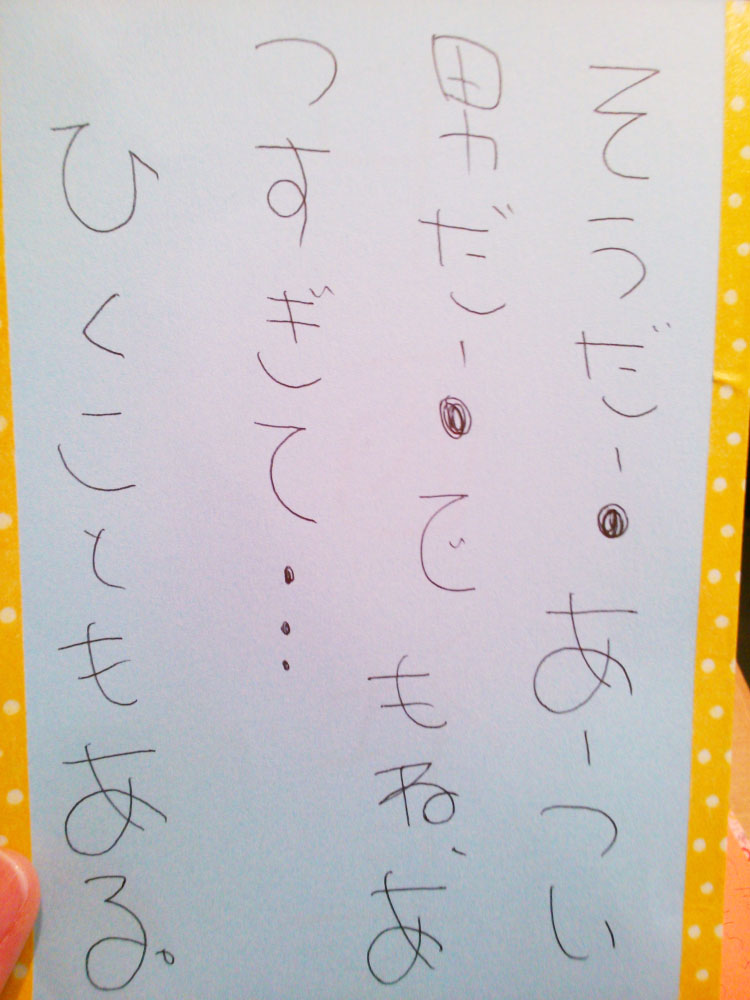 そこだ!あーつい
男だ!でもね、あ
つすぎて…
ひくこともある。